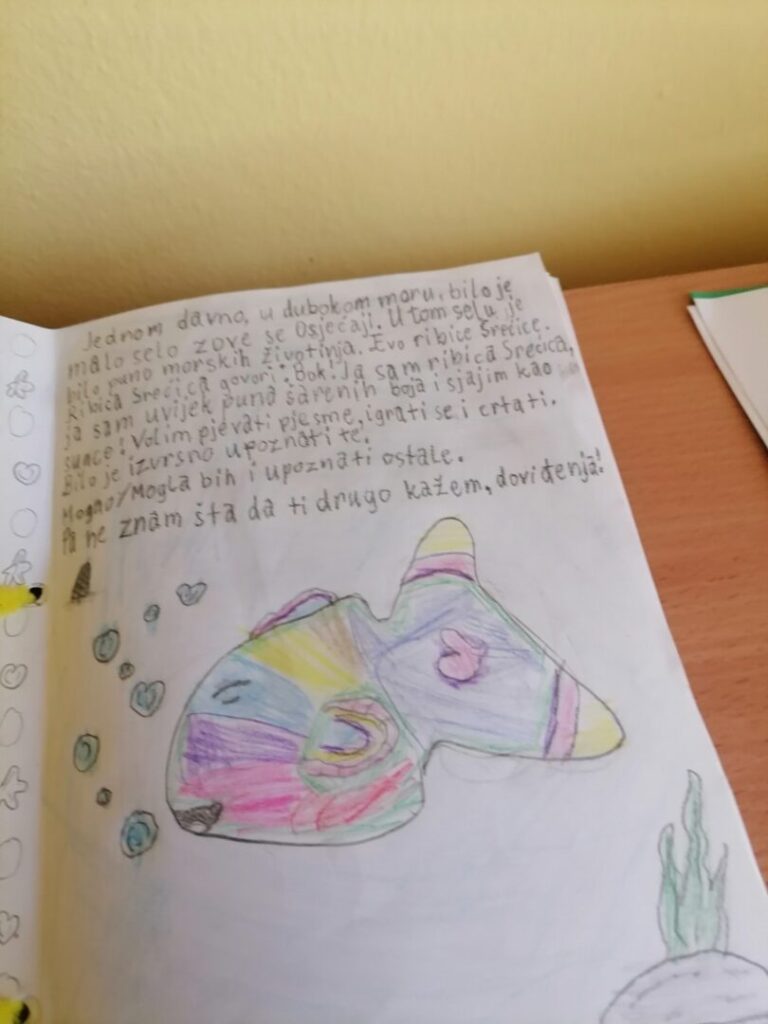 Jednom davno, u dubokom moru, bilo je
malo selo zove se Osjećaji. U tom selu je
bilo puno morskih životinja. Evo ribice Srećice.
Ribica Srećica govori: Bok! Ja sam ribica Srećica,
ja sam uvijek puna šarenih boja i sjajim kao
sunce! Volim pjevati pjesme, igrati se i crtati.
Bilo je izvrsno upoznati te.
Mogao/Mogla bih i upoznati ostale.
Pa ne znam šta da ti drugo kažem, doviđenja!